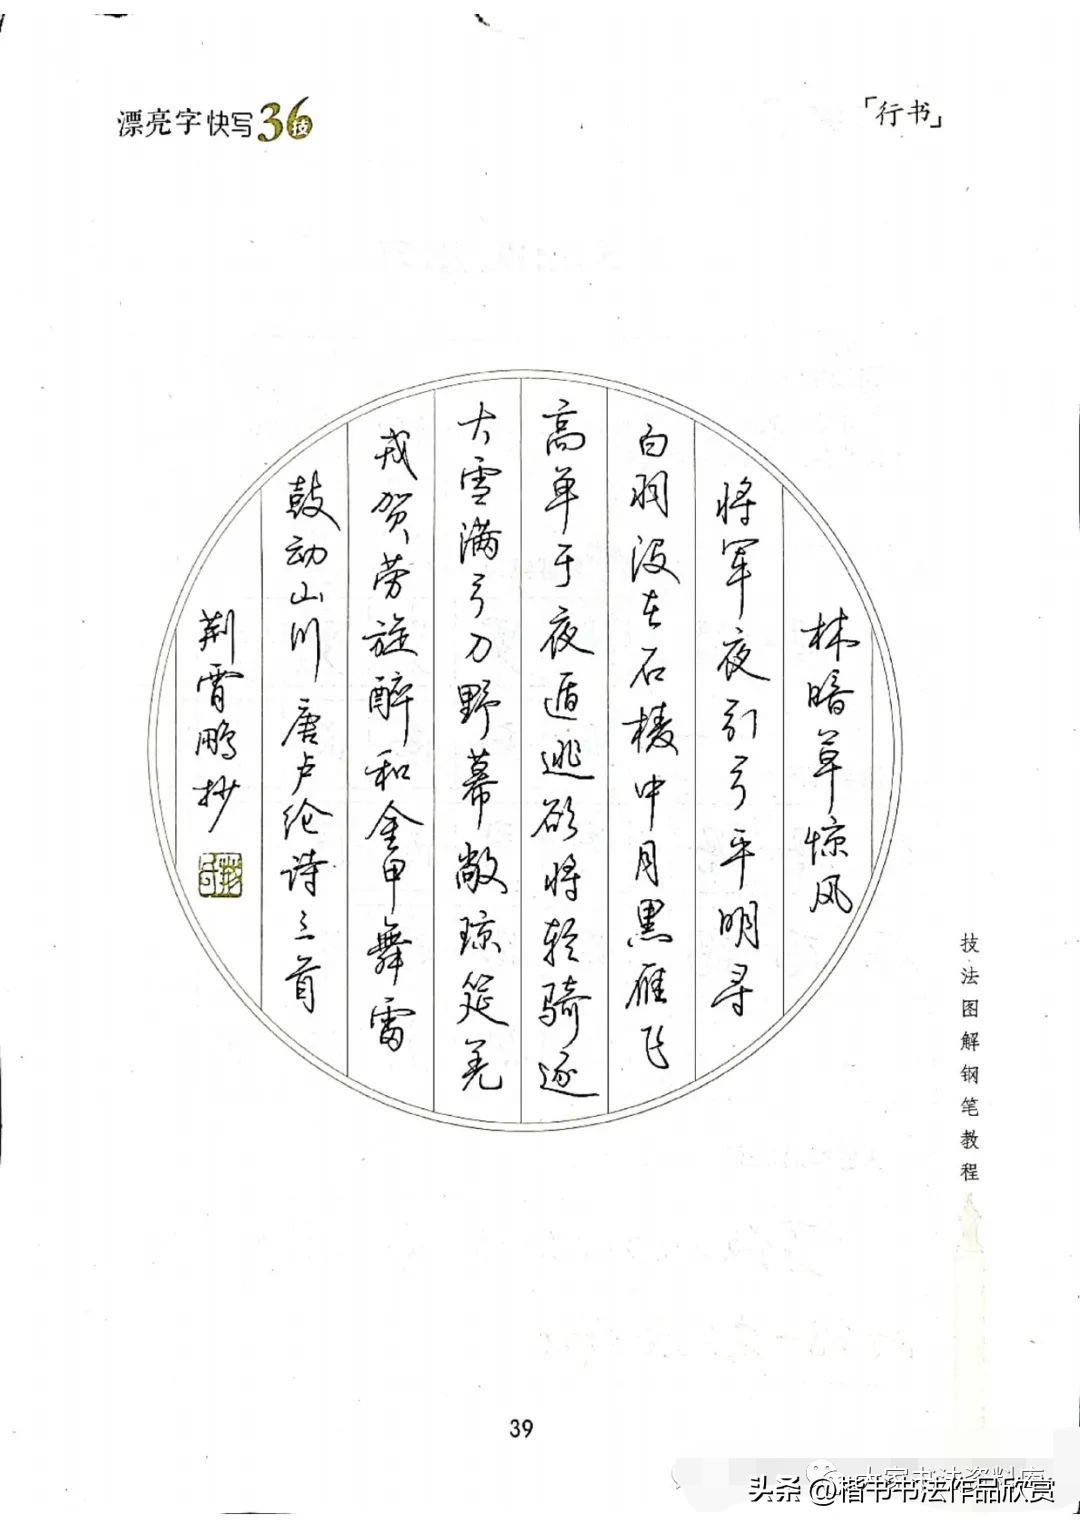 漂亮字快写36技
「行书」
林暗草惊风
将军夜引弓平明寻
白羽没在石棱中月黑雁飞
高单于夜遁逃欲将轻骑逐
大雪满弓刀野幕敞琼筵羌
戎贺劳旋醉和金甲舞雷
鼓动山川 唐卢纶诗三首
荆霄鹏抄
技法图解钢笔教程
39
头条 @楷书书法作品欣赏